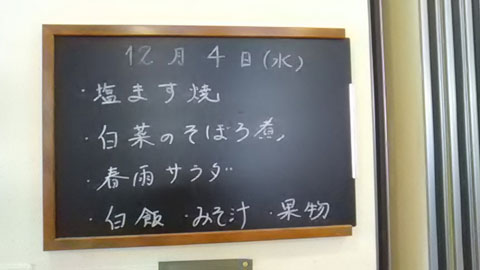 12月4日(水)
・塩ます焼
・白菜のそぼろ煮
・春雨サラダ
・白飯 ・みそ汁 ・果物